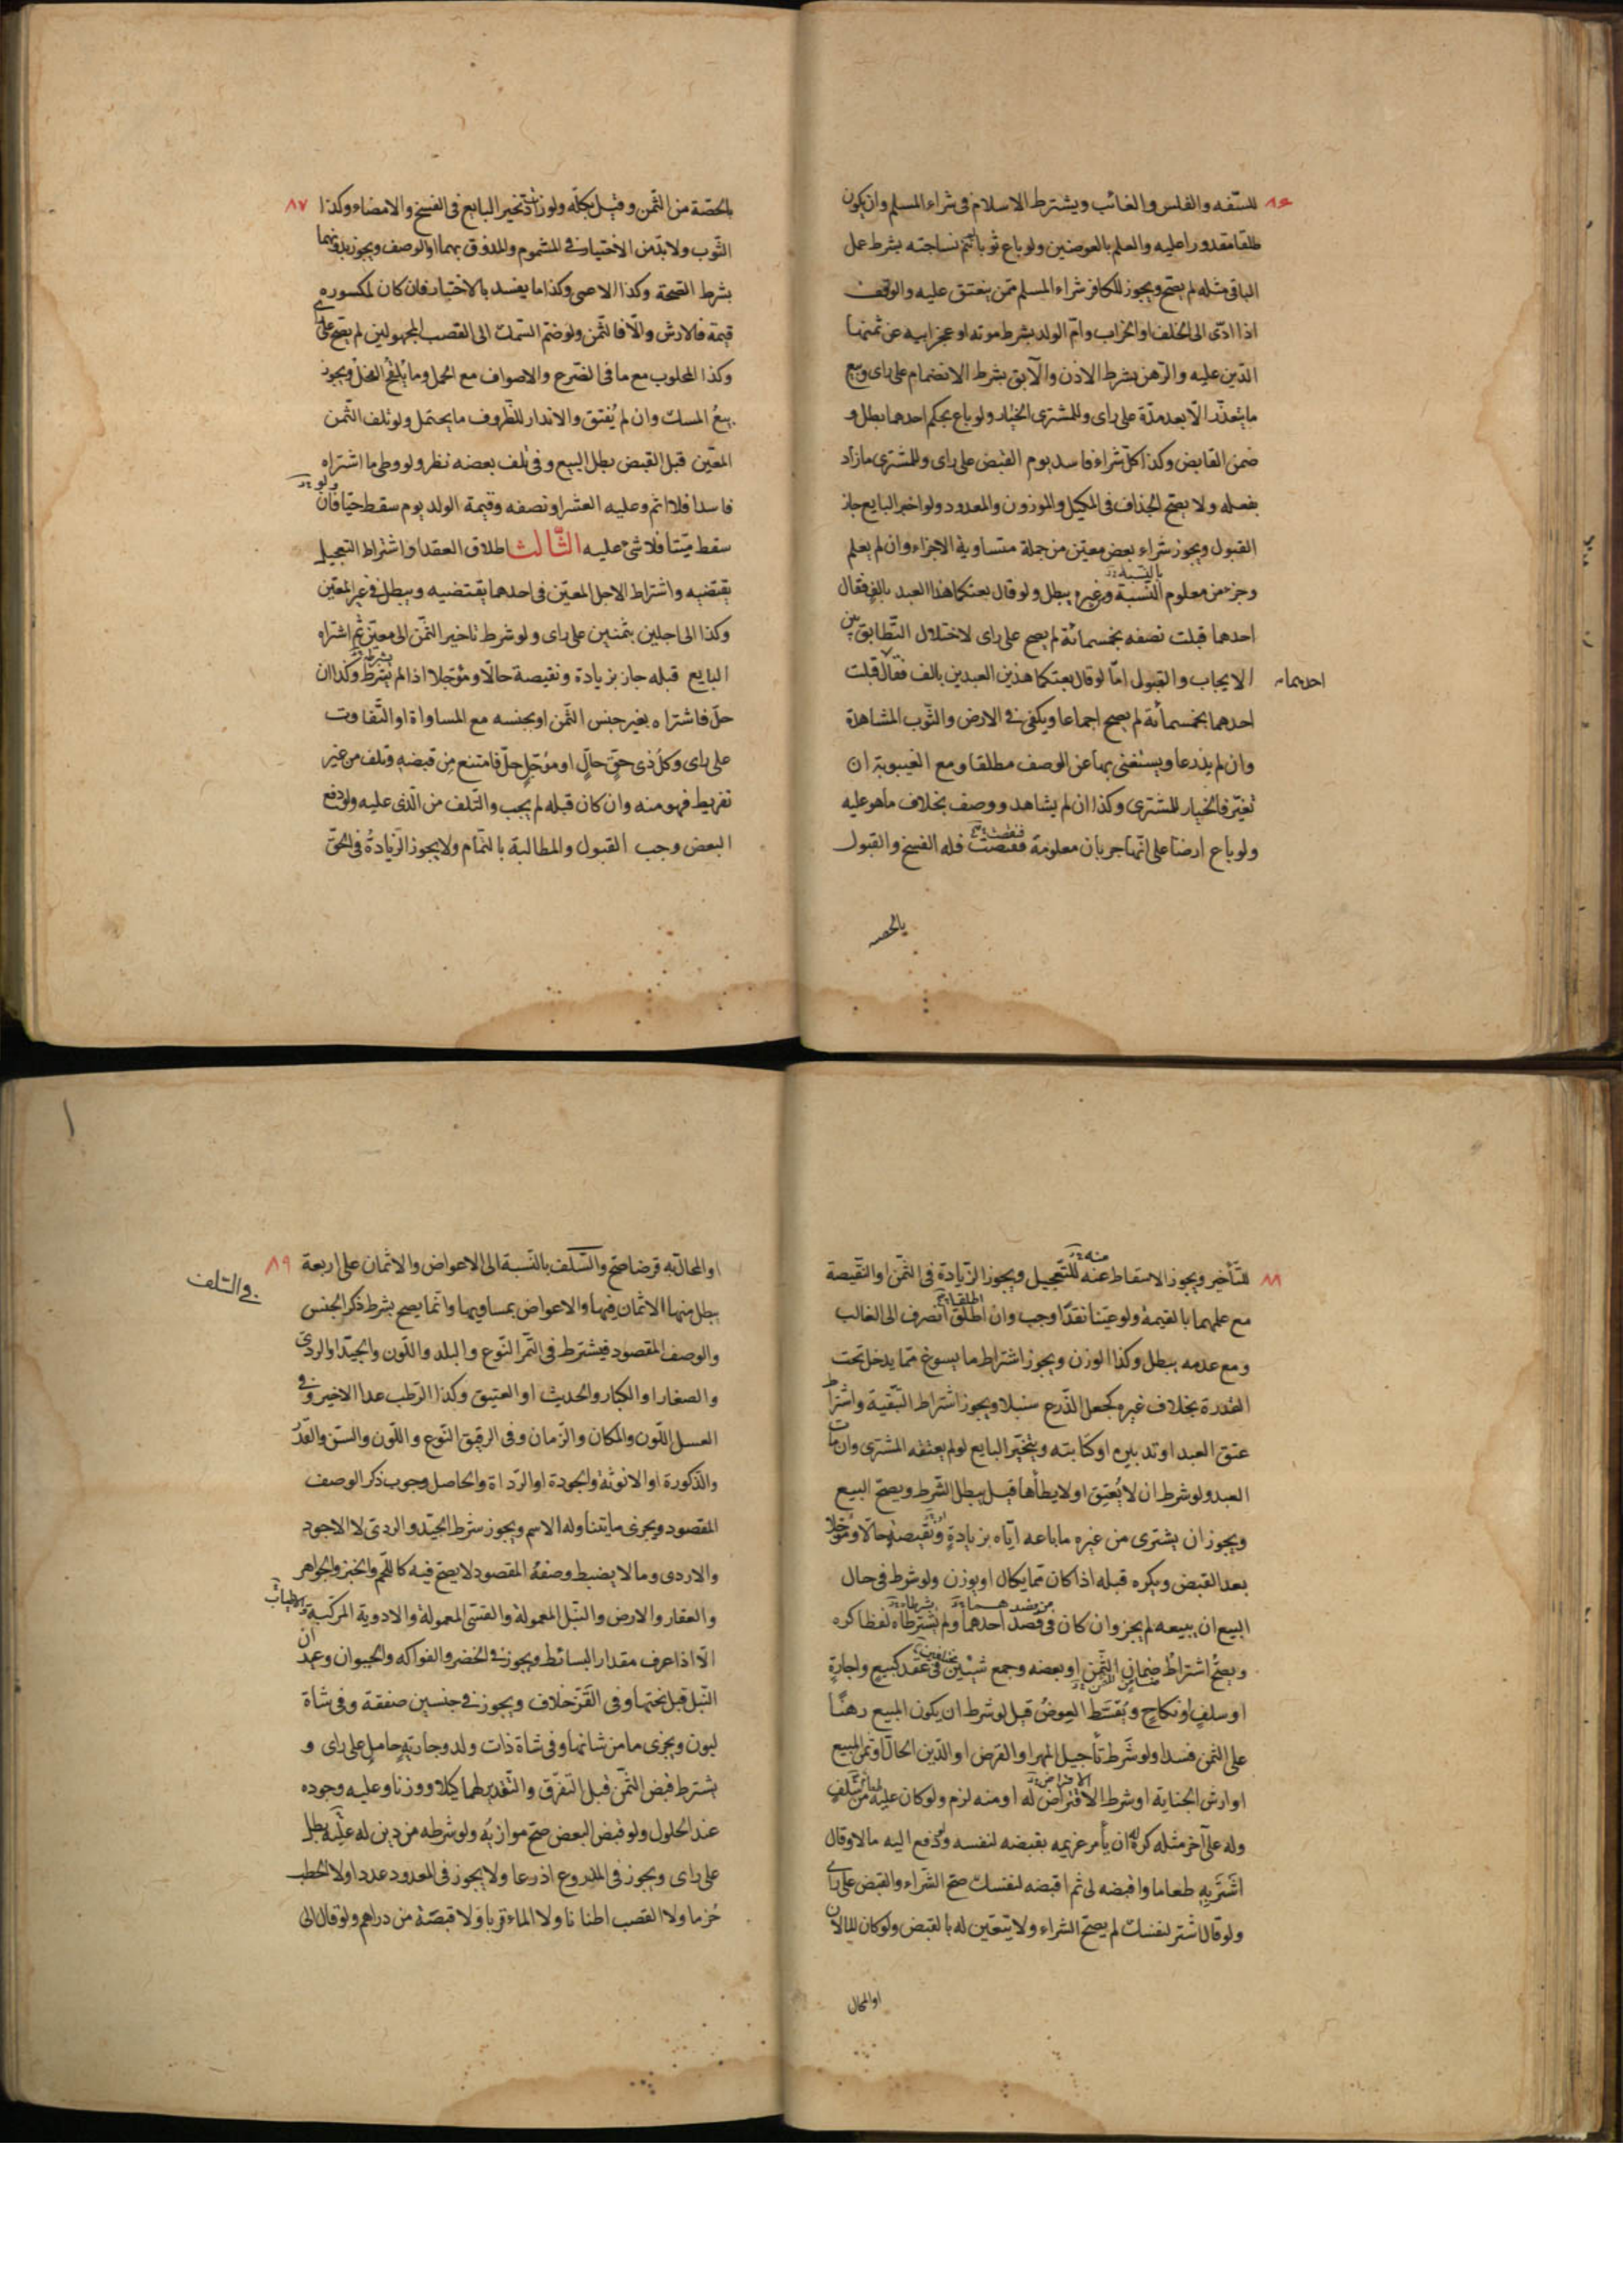 ٨٦
للسّفه والفلس والغائب ويشترط الاسلام فى شراء المسلم وان يكون
طلقا مقدورا عليه والعلم بالعوضين ولو باع ثوبا تتم نساجته بشرط عمل
الباقى مثله لم يصحّ ويجوز للكافر شراء المسلم ممّن ينعتق عليه والوقف
اذا ادّى الى الخلف او الخراب وامّ الولد بشرط موته او عجز ابيه عن ثمنها
الدّين عليه والرّهن بشرط الاذن والآبق بشرط الانضمام على راى وبيع
ما يتعذّر الّا بعد مدّة على راى وللمشترى الخيار ولو باع بحكم احدهما بطل و
ضمن القابض وكذا كلّ شراء فاسد يوم القبض على راى وللمشترى ما زاد
بفعله ولا يصحّ الجذاف فى المكيل والموزون والمعدود ولو اخبر البايع جاز
القبول ويجوز شراء بعض معيّن من جملة متساوية الاجزاء وان لم يعلم
بالنسبة
وجزء من معلوم النّسبة وغيره يبطل ولو قال بعتكما هذا العبد بالف فقال
احدهما قبلت نصفه بخمسمائة لم يصح على راى لاختلال التّطابق بين
الايجاب والقبول امّا لو قال بعتكما هذين العبدين بالف فقال قبلت
احدهما
احدهما بخمسمائة لم يصح اجماعا ويكفى فى الارض والثّوب المشاهدة
وان لم يذرعا ويستغنى بها عن الوصف مطلقا ومع الغيبوبة ان
تغيّر فالخيار للمشترى وكذا ان لم يشاهد ووصف بخلاف ما هو عليه
ولو باع ارضا على انّها جربان معلومة فنقصت فله الفسخ والقبول
بالحصه
٨٧
بالحصّة من الثّمن وقيل بكلّه ولو زادت تخير البايع فى الفسخ والامضاء وكذا
الثّوب ولا بدّ من الاختيار فى المشموم والمذوق بهما او الوصف ويجوز بدونهما
بشرط الصّحة وكذا الاعمى وكذا ما يفسد بالاختبار فان كان لمكسوره
قيمة فالارش والّا فالثّمن ولو ضمّ السّمك الى القصب المجهولين لم يصح على راى
وكذا المحلوب مع ما فى الضرع والاصواف مع الحمل وما يلقح النّخل ويجوز
بيع المسك وان لم يُفتق والاندار للظّروف ما يحتمل ولو تلف الثّمن
المعيّن قبل القبض بطل البيع وفى تلف بعضه نظر ولو وطى ما اشتراه
ولو
فاسدا فلا اثم وعليه العشر او نصفه وقيمة الولد يوم سقط حيّا فان
سقط ميّتا فلا شئ عليه الثّالث اطلاق العقد او اشتراط التعجيل
يقتضيه واشتراط الاجل المعيّن فى احدهما يقتضيه ويبطل فى غير المعيّن
وكذا الى اجلين بثمنين على راى ولو شرط تاخير الثّمن الى معيّن ثم اشتراه
البايع قبله جاز بزيادة ونقيصة حالّا ومؤجلا اذا لم يشترط وكذا ان
حلّ فاشتراه بغير جنس الثّمن او بجنسه مع المساواة او التّفاوت
على راى وكلّ ذى حقٍّ حالٍّ او مؤجّلٍ حلّ فامتنع مِن قبضهِ وتلف من غير
تفريط فهو منه وان كان قبله لم يجب والتّلف من الّذى عليه ولو دفع
البعض وجب القبول والمطالبة بالتّمام ولا يجوز الزّيادةُ فى الحقّ
٨٨
للتّأخير ويجوز الاسقاط عنه للتّعجيل ويجوز الزّيادة فى الثّمن او النّقيصة
منه
مع علمهما بالقيمة ولو عيّنا نقدًا وجب وان اطلق انصرف الى الغالب
اطلقا
ومع عدمه يبطل وكذا الوزن ويجوز اشتراط ما يسوغ ممّا يدخل تحت
القدرة بخلاف غيره كجعل الذّرع سنبلا ويجوز اشتراط التّبقية واشتراط
عتق العبد او تدبيره او كتابته ويتخيّر البايع لو لم يعتقه المشترى وان مات
العبد ولو شرط ان لا يُعتِق او لا يطأها قيل يبطل الشّرط ويصحّ البيع
ويجوز ان يشترى من غيره ما باعه ايّاه بزيادةٍ ونقيصة حالّا ومؤجّلا
بعد القبض ويكره قبله اذا كان ممّا يكال او يوزن ولو شرط فى حال
البيع ان يبيعه لم يجز وان كان فى قصد احدهما ولم يشترطاه لفظا كره
ويصحُّ اشتراطُ ضمانِ الثّمنِ او بعضه وجمع شيئين فى عقد كبيع واجارةٍ
مختلفين
او سلفٍ او نكاحٍ ويُقسّط العِوضُ قيل لو شرط ان يكون المبيع رهنًا
على الثمن فسد ولو شَرط تأجيل المهر او القرض او الدّين الحالّ او ثمن المبيع
او ارش الجناية او شرط الاقتراض له او منه لزم ولو كان عليه طعام من سلفٍ
الاقراض
وله على آخر مثله كره له ان يأمر غريمه بقبضه لنفسه ولو دفع اليه مالا وقال
اشتَرِ بِه طعاما واقبضه لى ثم اقبضه لنفسك صحّ الشّراء والقبض على راى
ولو قال اشتر لنفسك لم يصحّ الشراء ولا يتعيّن له بالقبض ولو كان المالان
او المحال
٨٩
او المحال به قرضا صحّ والسّلف بالنّسبة الى الاعواض والاثمان على اربعة
فى السّلف
يبطل منها الاثمان فيها والاعواض بمساويها وانّما يصح بشرط ذكر الجنس
والوصف المقصود فيشترط فى التّمر النّوع والبلد واللّون والجيّد او الردىّ
والصغار او الكبار والحديث او العتيق وكذا الرّطب عدا الاخير وفى
العسل اللّون والمكان والزّمان وفى الرقيق النّوع واللّون والسنّ والقدّ
والذّكورة او الانوثة والجودة او الرّداة والحاصل وجوب ذكر الوصف
المقصود ويجزى ما يتناوله الاسم ويجوز شرط الجيّد والردىّ لا الاجود
والاردى وما لا يضبط وصفهُ المقصود لا يصحّ فيه كاللّحم والخبز والجواهر
والعقار والارض والنّبل المعمولة والقسىّ المعمولة والادوية المركّبة والاطياب
الّا اذا عرف مقدار البسائط ويجوز فى الخضر والفواكه والحيوان وعيدان
النّبل قبل نحتها وفى القَزّ خلاف ويجوز فى جنسين صفقة وفى شاة
لبون ويجزى ما من شانها وفى شاة ذات ولد وجاريةٍ حاملٍ على راى و
يشترط قبض الثّمن قبل التّفرّق والتّقدير لهما كيلا ووزنا وعليه وجوده
عند الحلول ولو قبض البعض صحّ موازيهُ ولو شرطه من دين له عليه بطل
على راى ويجوز فى المذروع اذرعا ولا يجوز فى المعدود عددا ولا الحطب
حُزما ولا القصب اطنانا ولا الماء قربا ولا قبضة من دراهم ولو قال الى